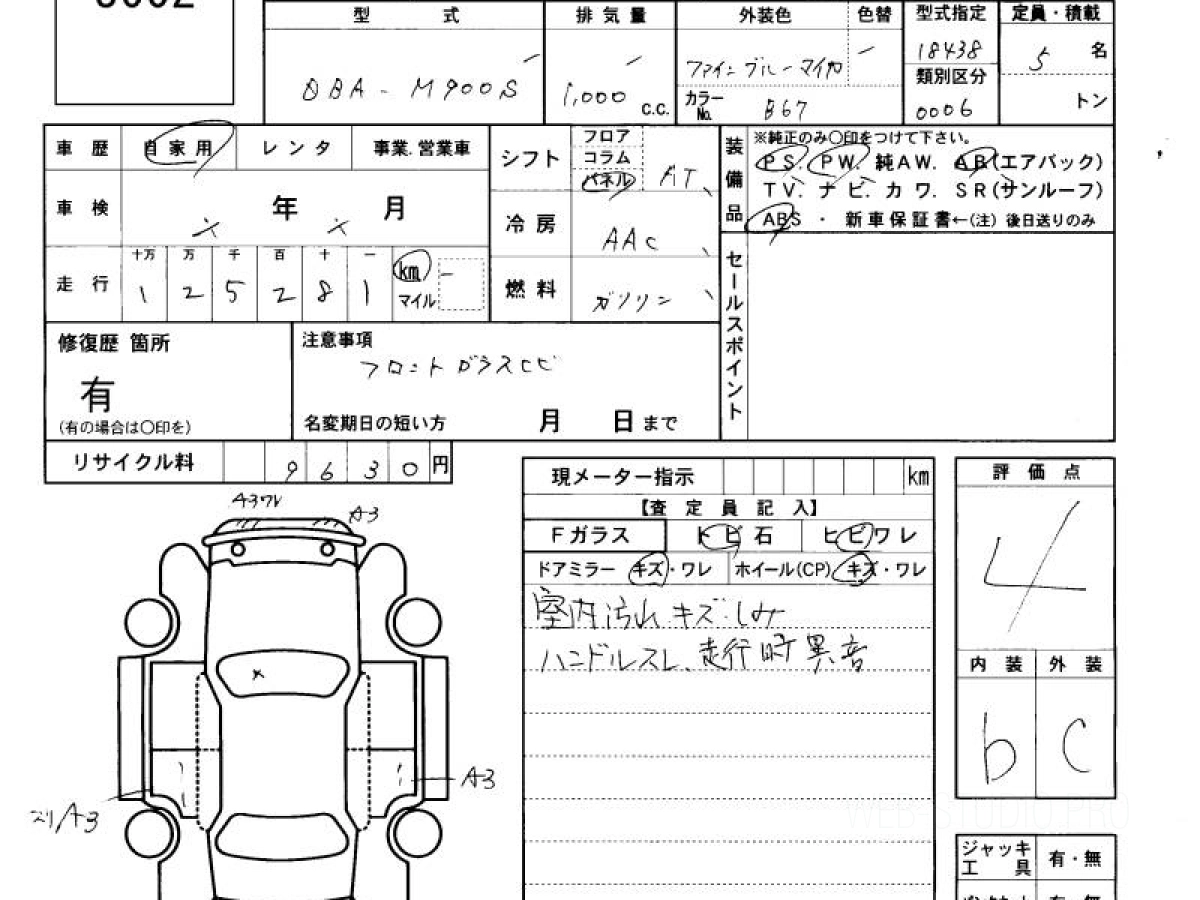 型 式 排気量 外装色 色替 型式指定 定員・積載
DBA - M900S 1,000 c.c. ファインブルーマイカ 18438 5 名
カラーNo. B67 類別区分 0006 トン
車歴 自家用 レンタ 事業.営業車
シフト フロア コラム パネル AT
装備品 ※純正のみ〇印をつけて下さい。
PS. PW. 純AW. AB(エアバック)
TV. ナビ. カワ. SR(サンルーフ)
ABS ・ 新車保証書←(注) 後日送りのみ
車検 年 月
冷房 AAC
走行 十万 万 千 百 十 一
1 2 5 2 8 1 km マイル
燃料 ガソリン
セールスポイント
修復歴 箇所
有
(有の場合は〇印を)
注意事項
フロントガラスヒビ
名変期日の短い方 月 日まで
リサイクル料 9630円
現メーター指示 km
【査定員記入】
Fガラス トビ石 ヒビワレ
ドアミラー キズ・ワレ ホイール(CP) キズ・ワレ
室内汚れ キズ・しみ
ハンドルスレ、走行時異音
評価点
4
内装 外装
b C
A3ワレ
A3
A3
A3
ジャッキ 工具 有・無
WEB-STUDIO.PRO